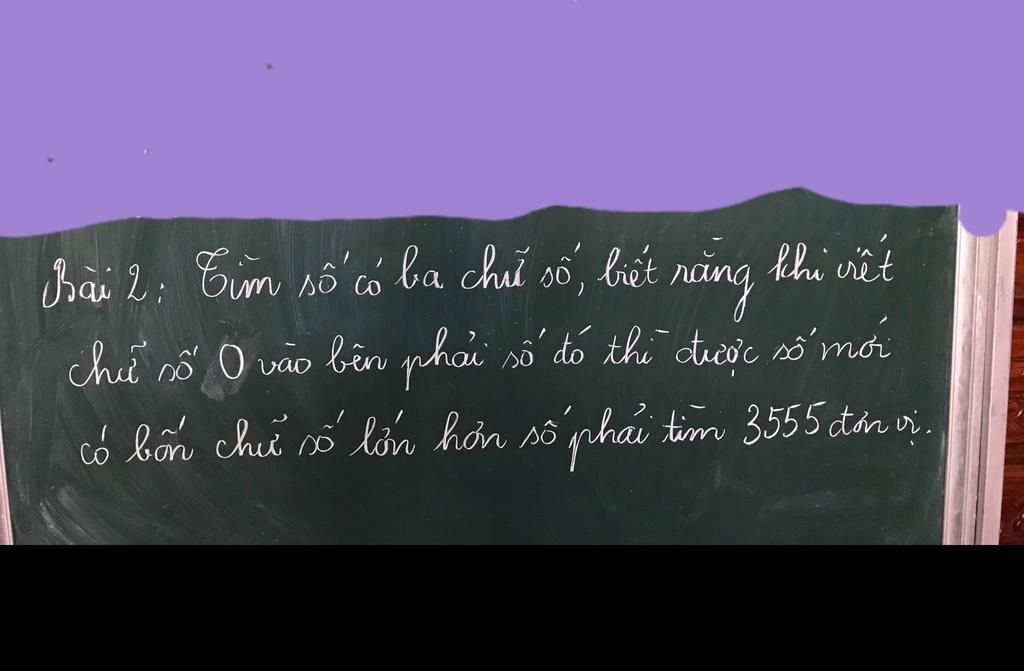 Bài 2: Tìm số có ba chữ số, biết rằng khi viết
chữ số 0 vào bên phải số đó thì được số mới
có bốn chữ số lớn hơn số phải tìm 3555 đơn vị.